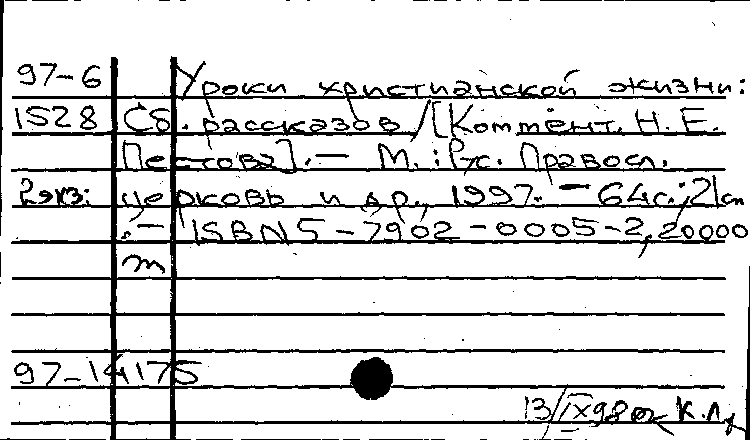 97-6 Уроки христианской жизни:
1528 Сб. рассказов / [Коммент. Н. Е.
Пестова]. — М.: Рус. Правосл.
2экз: церковь и др., 1997. — 64с.; 21см
. — ISBN 5-7902-0005-2, 20000
т
97-14175
13/IX98 К.Л